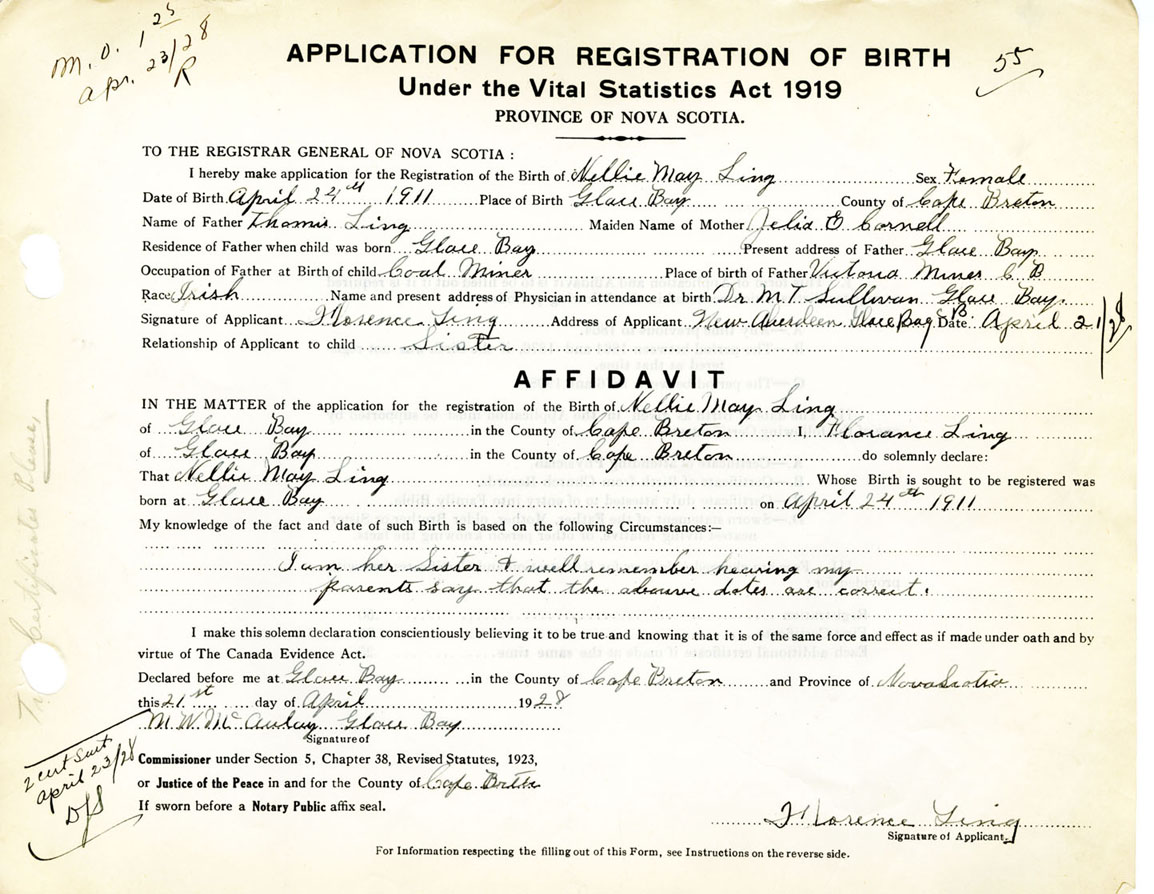 M.O. 1 25
Apr. 23/28
R
55
APPLICATION FOR REGISTRATION OF BIRTH
Under the Vital Statistics Act 1919
PROVINCE OF NOVA SCOTIA.
TO THE REGISTRAR GENERAL OF NOVA SCOTIA :
I hereby make application for the Registration of the Birth of Nellie May Ling Sex Female
Date of Birth April 24th 1911 Place of Birth Glace Bay County of Cape Breton
Name of Father Thomas Ling Maiden Name of Mother Jelia E Cornell
Residence of Father when child was born Glace Bay Present address of Father Glace Bay
Occupation of Father at Birth of child Coal Miner Place of birth of Father Victoria Mines C B
Race Irish Name and present address of Physician in attendance at birth Dr M.T. Sullivan Glace Bay.
Signature of Applicant Florence Ling Address of Applicant New Aberdeen Glace Bay C.B. Date April 21/28
Relationship of Applicant to child Sister
AFFIDAVIT
IN THE MATTER of the application for the registration of the Birth of Nellie May Ling
of Glace Bay in the County of Cape Breton I, Florance Ling
of Glace Bay in the County of Cape Breton do solemnly declare:
That Nellie May Ling Whose Birth is sought to be registered was
born at Glace Bay on April 24th 1911
My knowledge of the fact and date of such Birth is based on the following Circumstances:—
I am her Sister & well remember hearing my
parents say that the above dates are correct.
I make this solemn declaration conscientiously believing it to be true and knowing that it is of the same force and effect as if made under oath and by
virtue of The Canada Evidence Act.
Declared before me at Glace Bay in the County of Cape Breton and Province of Nova Scotia
this 21st day of April 1928
M. W. McAulay Glace Bay
Signature of
Commissioner under Section 5, Chapter 38, Revised Statutes, 1923,
or Justice of the Peace in and for the County of Cape Breton
If sworn before a Notary Public affix seal.
Florence Ling
Signature of Applicant.
For Information respecting the filling out of this Form, see Instructions on the reverse side.
Certificates Please
2 cert sent
April 23/28